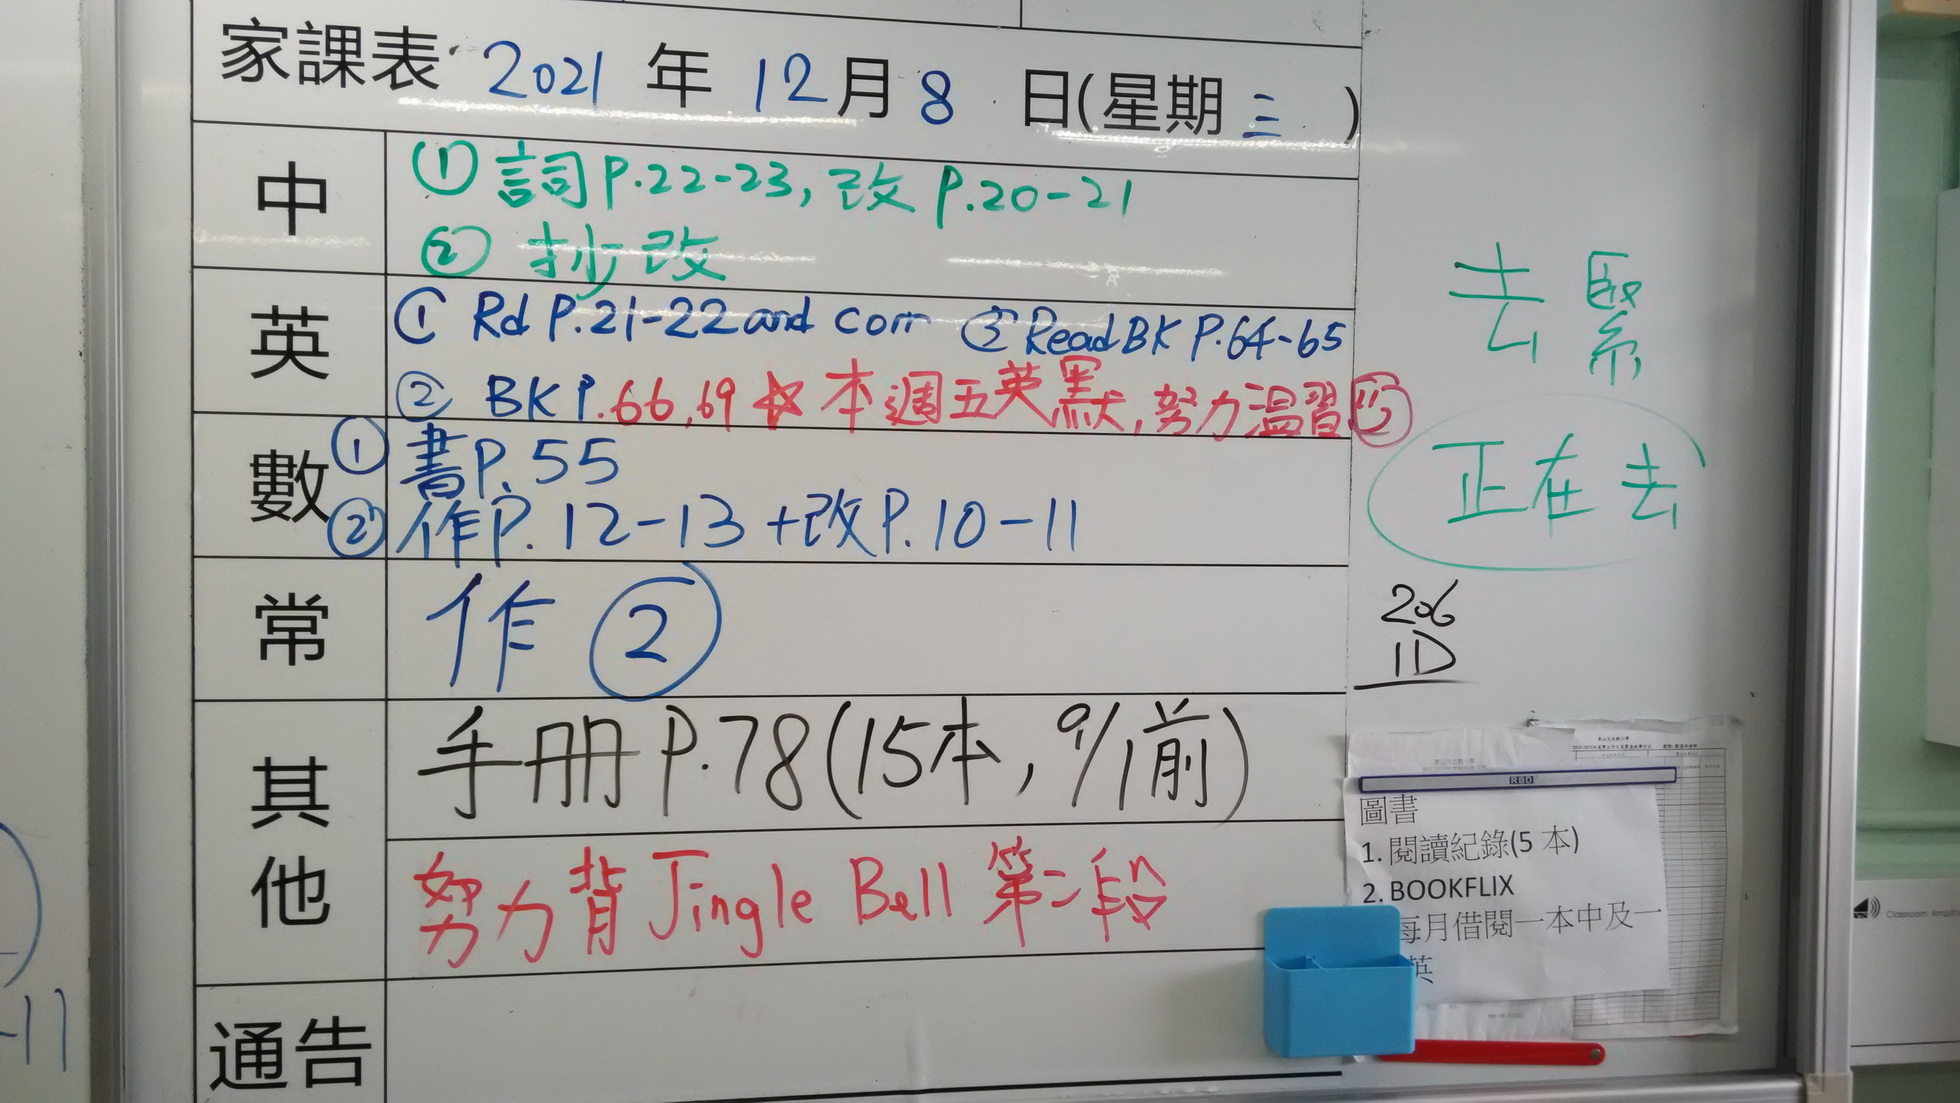 家課表 2021 年 12 月 8 日(星期 三 )
中
① 詞 P.22-23, 改 P.20-21
② 抄改
英
① Rd P.21-22 and corr ③ Read BK P.64-65
② BK P.66,69 ☆ 本週五英默, 努力溫習
數
① 書P.55
② 作P.12-13 +改P.10-11
常
作 ②
其他
手冊 P.78(15本, 9/1前)
努力背 Jingle Bell 第二段
通告
去 緊
正在去
206
1D
RBD
圖書
1. 閱讀紀錄(5 本)
2. BOOKFLIX
每月借閱一本中及一
英
-11